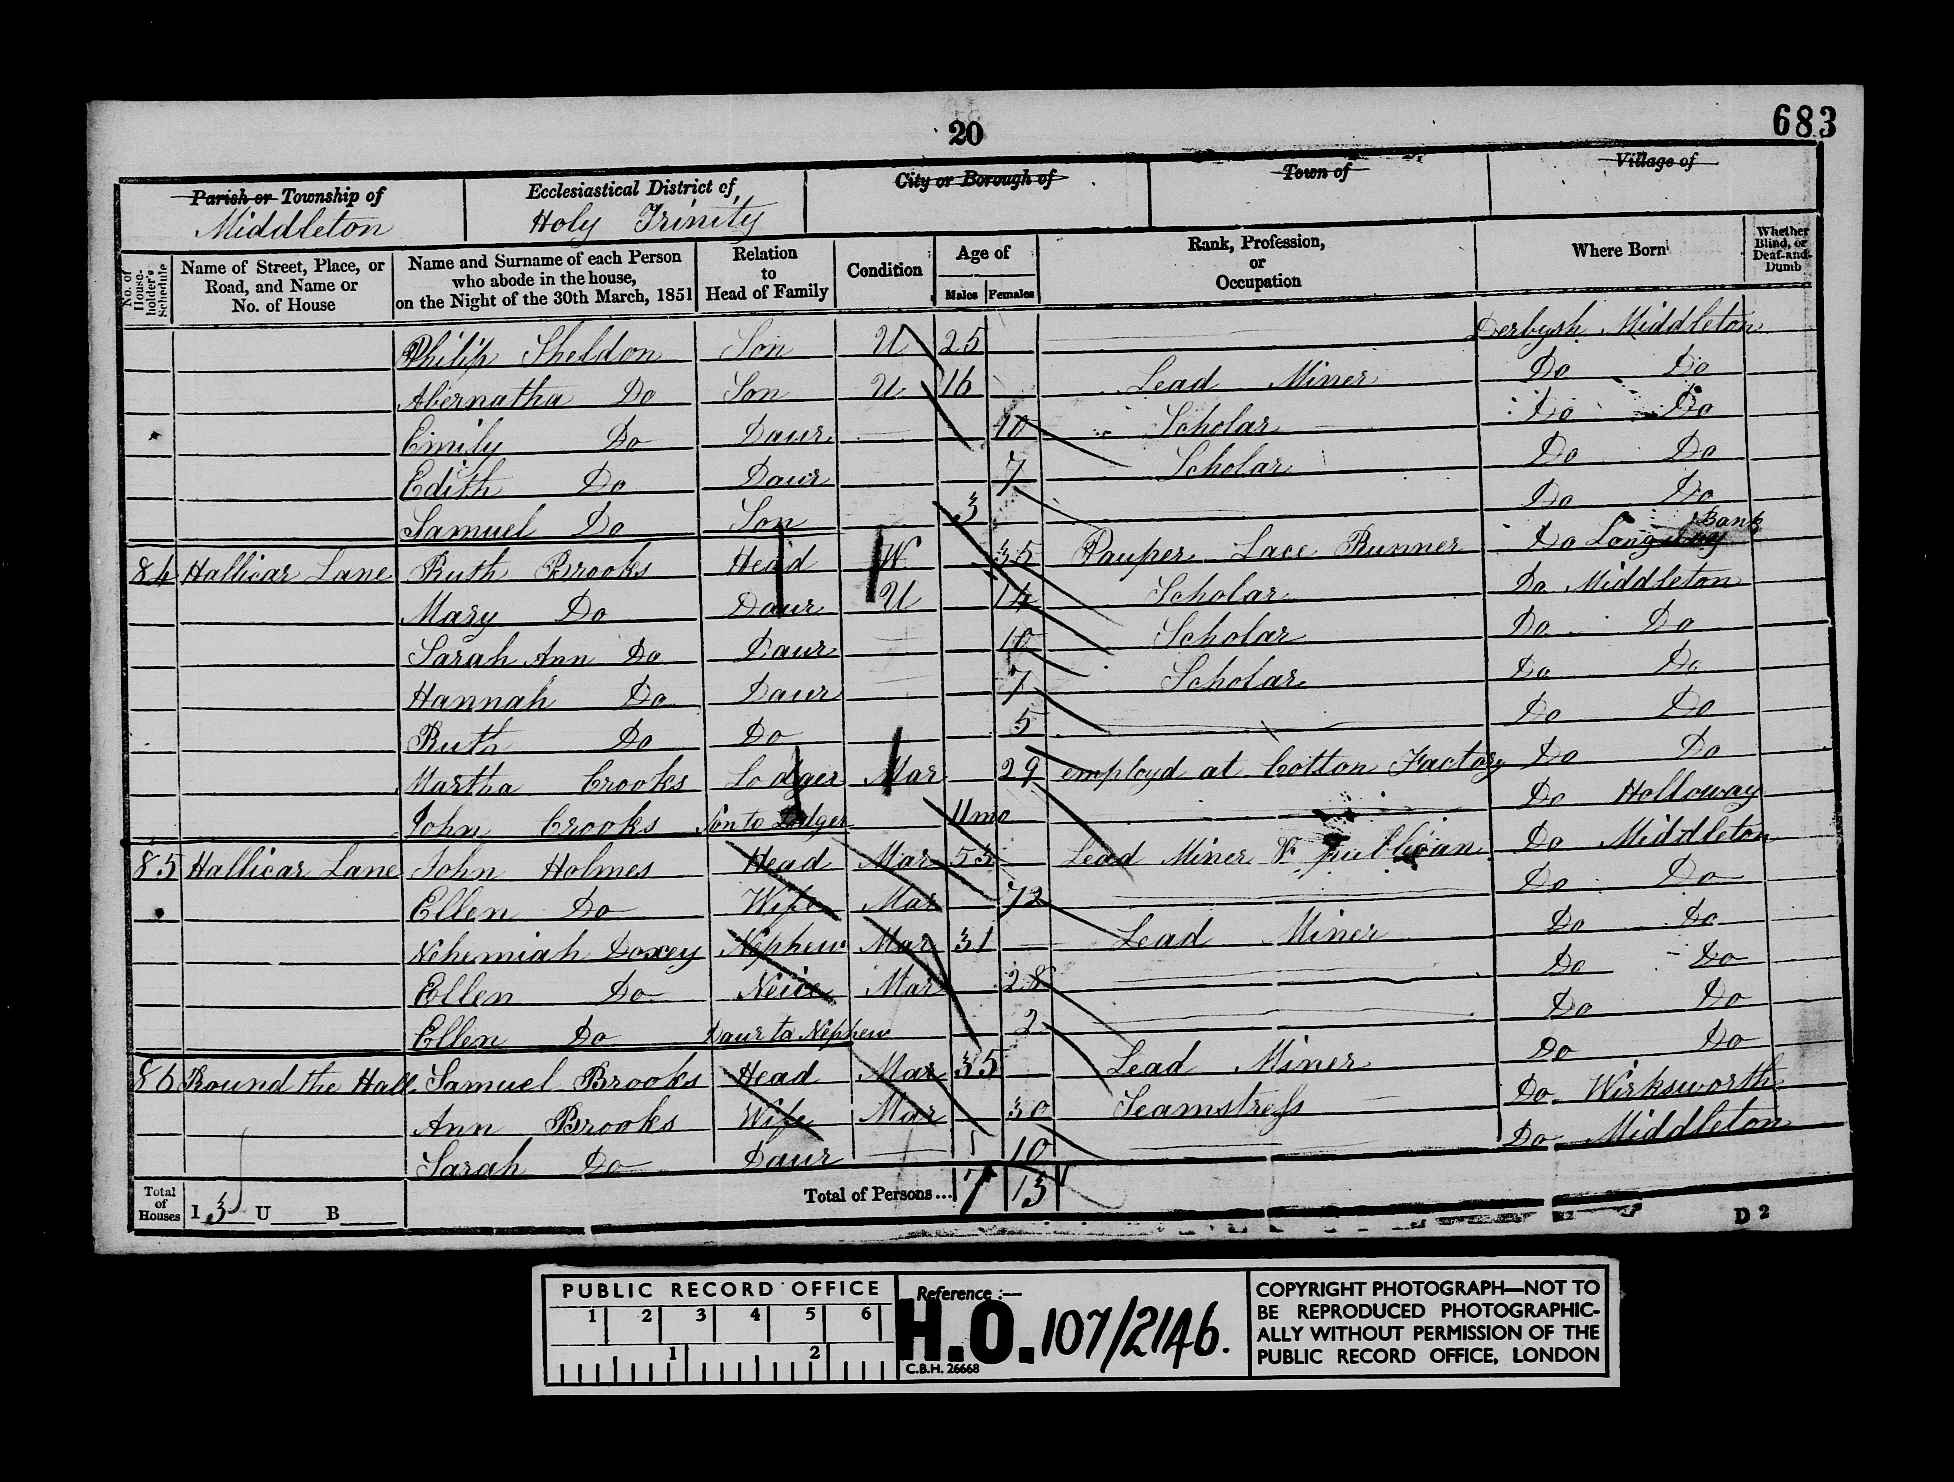 20
683
Parish or Township of
Middleton
Ecclesiastical District of
Holy Trinity
City or Borough of
Town of
Village of
No. of House-holder's Schedule
Name of Street, Place, or Road, and Name or No. of House
Name and Surname of each Person who abode in the house, on the Night of the 30th March, 1851
Relation to Head of Family
Condition
Age of
Males Females
Rank, Profession, or Occupation
Where Born
Whether Blind, or Deaf-and-Dumb
Philip Sheldon Son U 25 Derbysh Middleton
Abernatha Do Son U 16 Lead Miner Do Do
Emily Do Daur 10 Scholar Do Do
Edith Do Daur 7 Scholar Do Do
Samuel Do Son 3 Do Do
84 Hallicar Lane Ruth Brooks Head W 35 Pauper Lace Runner Do Bank
Mary Do Daur U 14 Scholar Do Middleton
Sarah Ann Do Daur 10 Scholar Do Do
Hannah Do Daur 7 Scholar Do Do
Ruth Do Do 5 Do Do
Martha Crooks Lodger Mar 29 employd at Cotton Factory Do Do
John Crooks Son to Lodger 11mo Do Holloway
85 Hallicar Lane John Holmes Head Mar 53 Lead Miner & publican Do Middleton
Ellen Do Wife Mar 72 Do Do
Nehemiah Doxey Nephew Mar 31 Lead Miner Do Do
Ellen Do Neice Mar 28 Do Do
Ellen Do Daur to Nephew 2 Do Do
86 Round the Hall Samuel Brooks Head Mar 35 Lead Miner Do Do
Ann Brooks Wife Mar 30 Seamstress Do Wirksworth
Sarah Do Daur 10 Do Middleton
Total of Houses I 3 U B Total of Persons... 7 13
D 2
PUBLIC RECORD OFFICE
1 2 3 4 5 6
1 2
Reference :—
H.O. 107/2146.
C.B.H. 26668
COPYRIGHT PHOTOGRAPH—NOT TO
BE REPRODUCED PHOTOGRAPHIC-
ALLY WITHOUT PERMISSION OF THE
PUBLIC RECORD OFFICE, LONDON